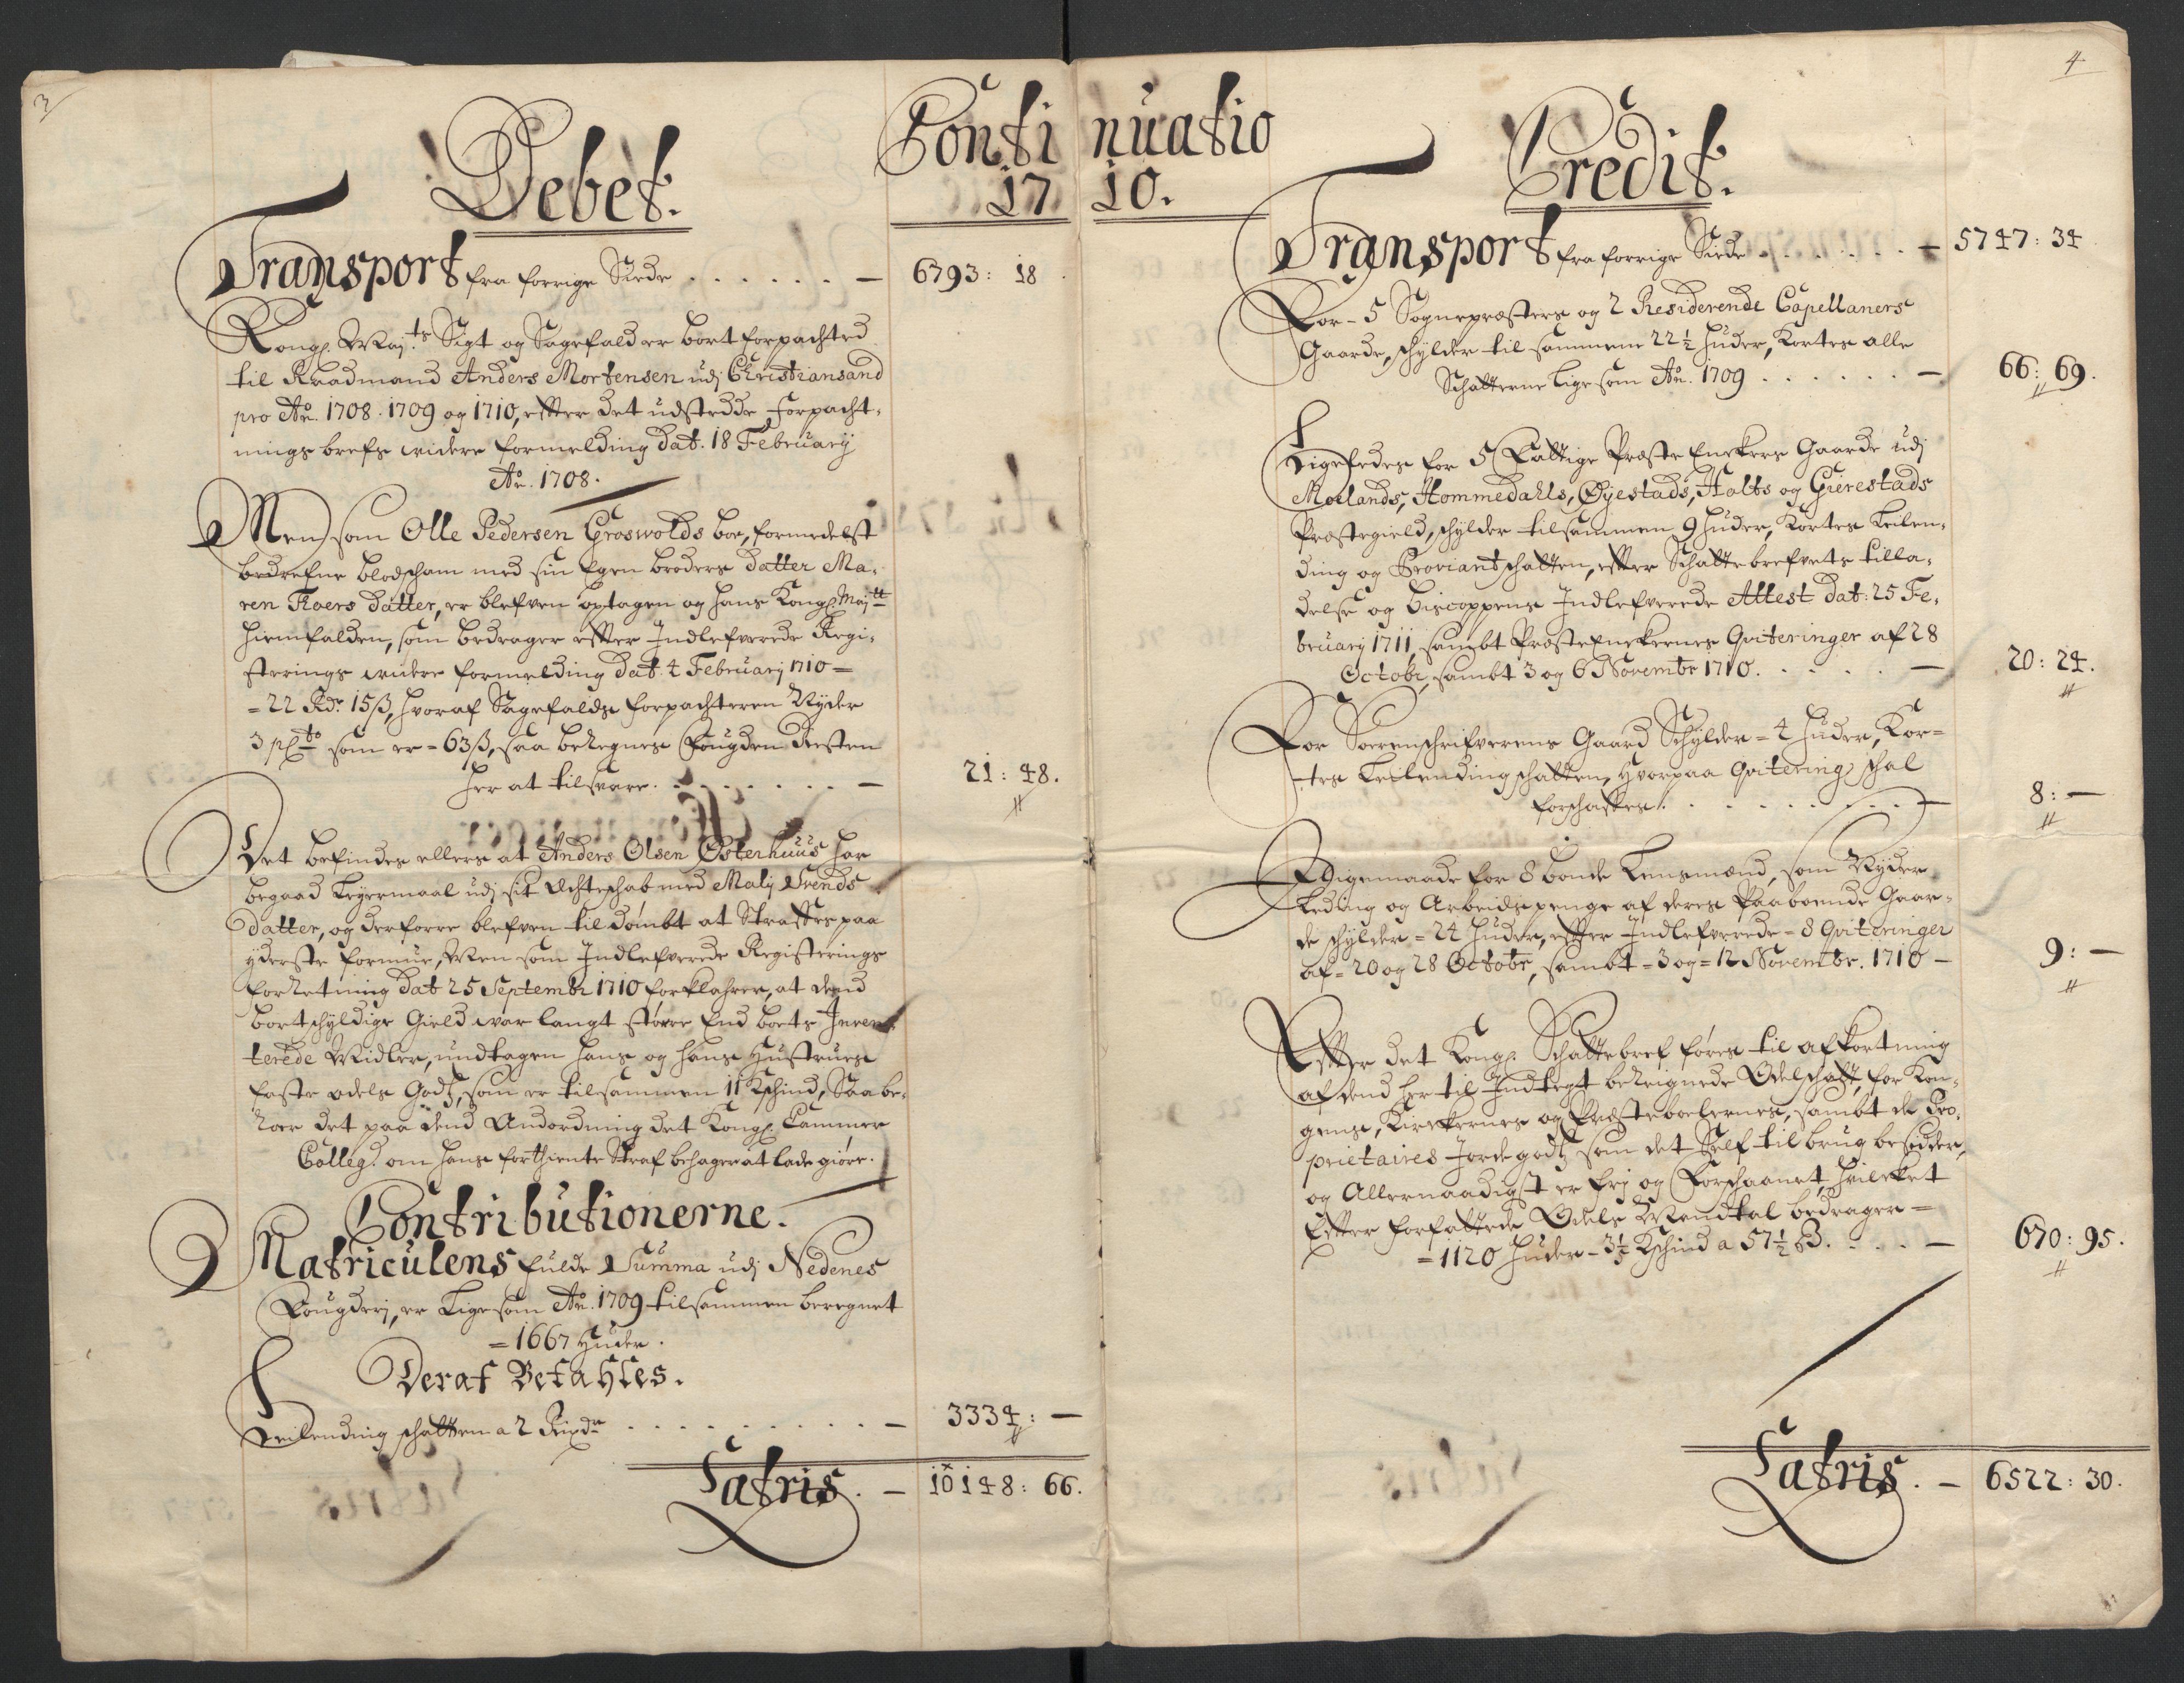 3
Debet.
Conti
17
Transport fra forrige Siide . . . . . . — 6793: 18
Kongl. Maj.ts Sigt og Sagefald er bort forpachted
til Raadmand Anders Mortensen udj Christiansand
pro Ao. 1708. 1709 og 1710, effter det udstædde Forpacht-
nings brefs videre formelding dat. 18 February
Ao. 1708.
Men som Olle Pedersen Groswolds boe, formedelst
bedrefne blodscham med sin Egen broders datter Ma-
ren Roers datter, er blefven optagen og hans Kongl. Maj.tt
hiemfalden, som bedrager effter Indlefverede Regi-
sterings videre formelding dat. 4 Februarj 1710 =
= 22 Rdr. 15 ß, hvoraf Sagefalds forpachteren Nyder
3 p.Cto som er = 63 ß, saa beregnes Fougden Resten
her at tilsvare. . . . . . . . — 21: 48.
Det befindes ellers at Anders Olsen Østerhuus har
begaad Leyermaal udj sit Echteschab med Malj Svends
datter, og derforre blefven til dømbt at Straffes paa
yderste formue, Men som Indlefverede Registerings
forretning dat 25 Septembr 1710 forklahrer, at dend
bortschyldige Gield var langt større End boets Inven-
terede Midler, undtagen hans og hans Hustrues
faste odels Godtz, som er tilsammen 11 Kschind, Saa be-
roer det paa dend Andordning det Kongl. Cammer
Colleg. om hans forthiente Straf behager at lade giøre.
Contributionerne.
Matriculens fulde Summa udj Nedenes
Fougderj, er Lige som Ao. 1709 tilsammen beregnet
= 1667 Huder.
Deraf Betahles.
Leilending schatten a 2 Rixdr . . . . . . . . . — 3334: —
Latris. — 10148: 66.
4
nuatio
10.
Credit.
Transport fra forrige Siide . . . . . . . — 5747: 34
For - 5 Sognepræsters og 2 Residerende Capellaners
Gaarde, schylder til sammen 22 ½ Huder, Kortes alle
Schatterne Lige som Ao. 1709 . . . . . . — 66: 69.
Ligeledes for 5 Fattige Præste Enckers Gaarde udj
Moelands, Hommedahls, Øyestads, Halts og Gierestads
Præstegield, schylder tilsammen 9 Huder, Kortes Leilen-
ding og Proviant schatten, effter Schatte brefvets tilla-
delse og biscoppens Indlefverede Attest dat: 25 Fe-
bruarj 1711, sambt Præsteenckernes Qviteringer af 28
Octobr, sambt 3 og 6 Novembr 1710. . . . . — 20: 24.
For Sorenschrifverens Gaard Schylder = 4 Huder, Kor-
tes Leilending schatten, Hvorpaa Qvitering schal
forschaffes. . . . . . . . . — 8: —
Ligemaade for 8 bonde Lensmænd, som Nyder
Leding og Arbeidspenge af deres Paaboende Gaar-
de schylder = 24 Huder, effter Indlefverede = 8 Qviteringer
af = 20 og 28 Octobr, sambt = 3 og = 12 Novembr. 1710 — 9: —
Effter det Kongl. Schattebref føres til afkortning
af dend her til Indtegt beregnede Odelschatt, for Kon-
gens, Kirckernes og Præstebolernes, sambt de Pro-
prietaires Jordegodtz som det Self til brug besidder,
og Allernaadigst er frj og Forschaanet, hvilcket
Effter forfattede Odels Mandtal bedrager =
= 1120 Huder - 3 ½ Kschind a 57 ½ ß. . . . — 670: 95.
Latris. — 6522: 30.